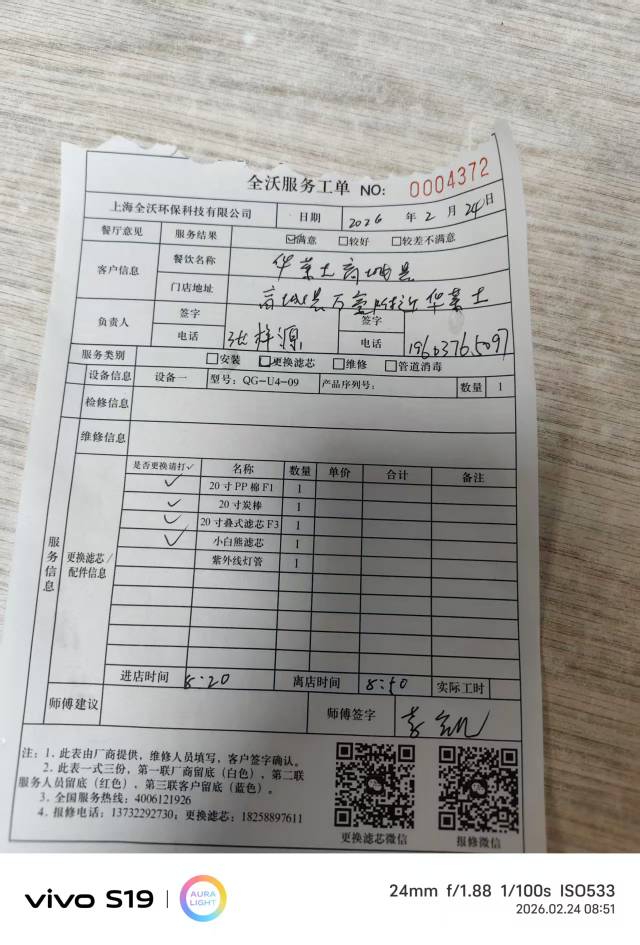 全沃服务工单 NO: 0004372
上海全沃环保科技有限公司 日期 2026 年 2 月 24 日
餐厅意见 服务结果 ☑满意 □较好 □较差不满意
客户信息 餐饮名称 华莱士商城县
门店地址 商城县万鑫附近华莱士
负责人 签字 签字
电话 张梓源 电话
服务类别 □安装 □更换滤芯 □维修 □管道消毒
设备信息 设备一 型号: QG-U4-09 产品序列号: 数量 1
检修信息
维修信息
服务信息 更换滤芯/配件信息
是否更换请打✓ 名称 数量 单价 合计 备注
✓ 20寸PP棉F1 1
✓ 20寸炭棒 1
✓ 20寸叠式滤芯F3 1
✓ 小白熊滤芯 1
紫外线灯管 1
进店时间 8:20 离店时间 8:50 实际工时
师傅建议 师傅签字
注: 1. 此表由厂商提供, 维修人员填写, 客户签字确认。
2. 此表一式三份, 第一联厂商留底 (白色), 第二联
服务人员留底 (红色), 第三联客户留底 (蓝色)。
3. 全国服务热线: 4006121926
4. 报修电话: 13732292730; 更换滤芯: 18258897611
更换滤芯微信 报修微信
vivo S19 AURA LIGHT 24mm f/1.88 1/100s ISO533
2026.02.24 08:51